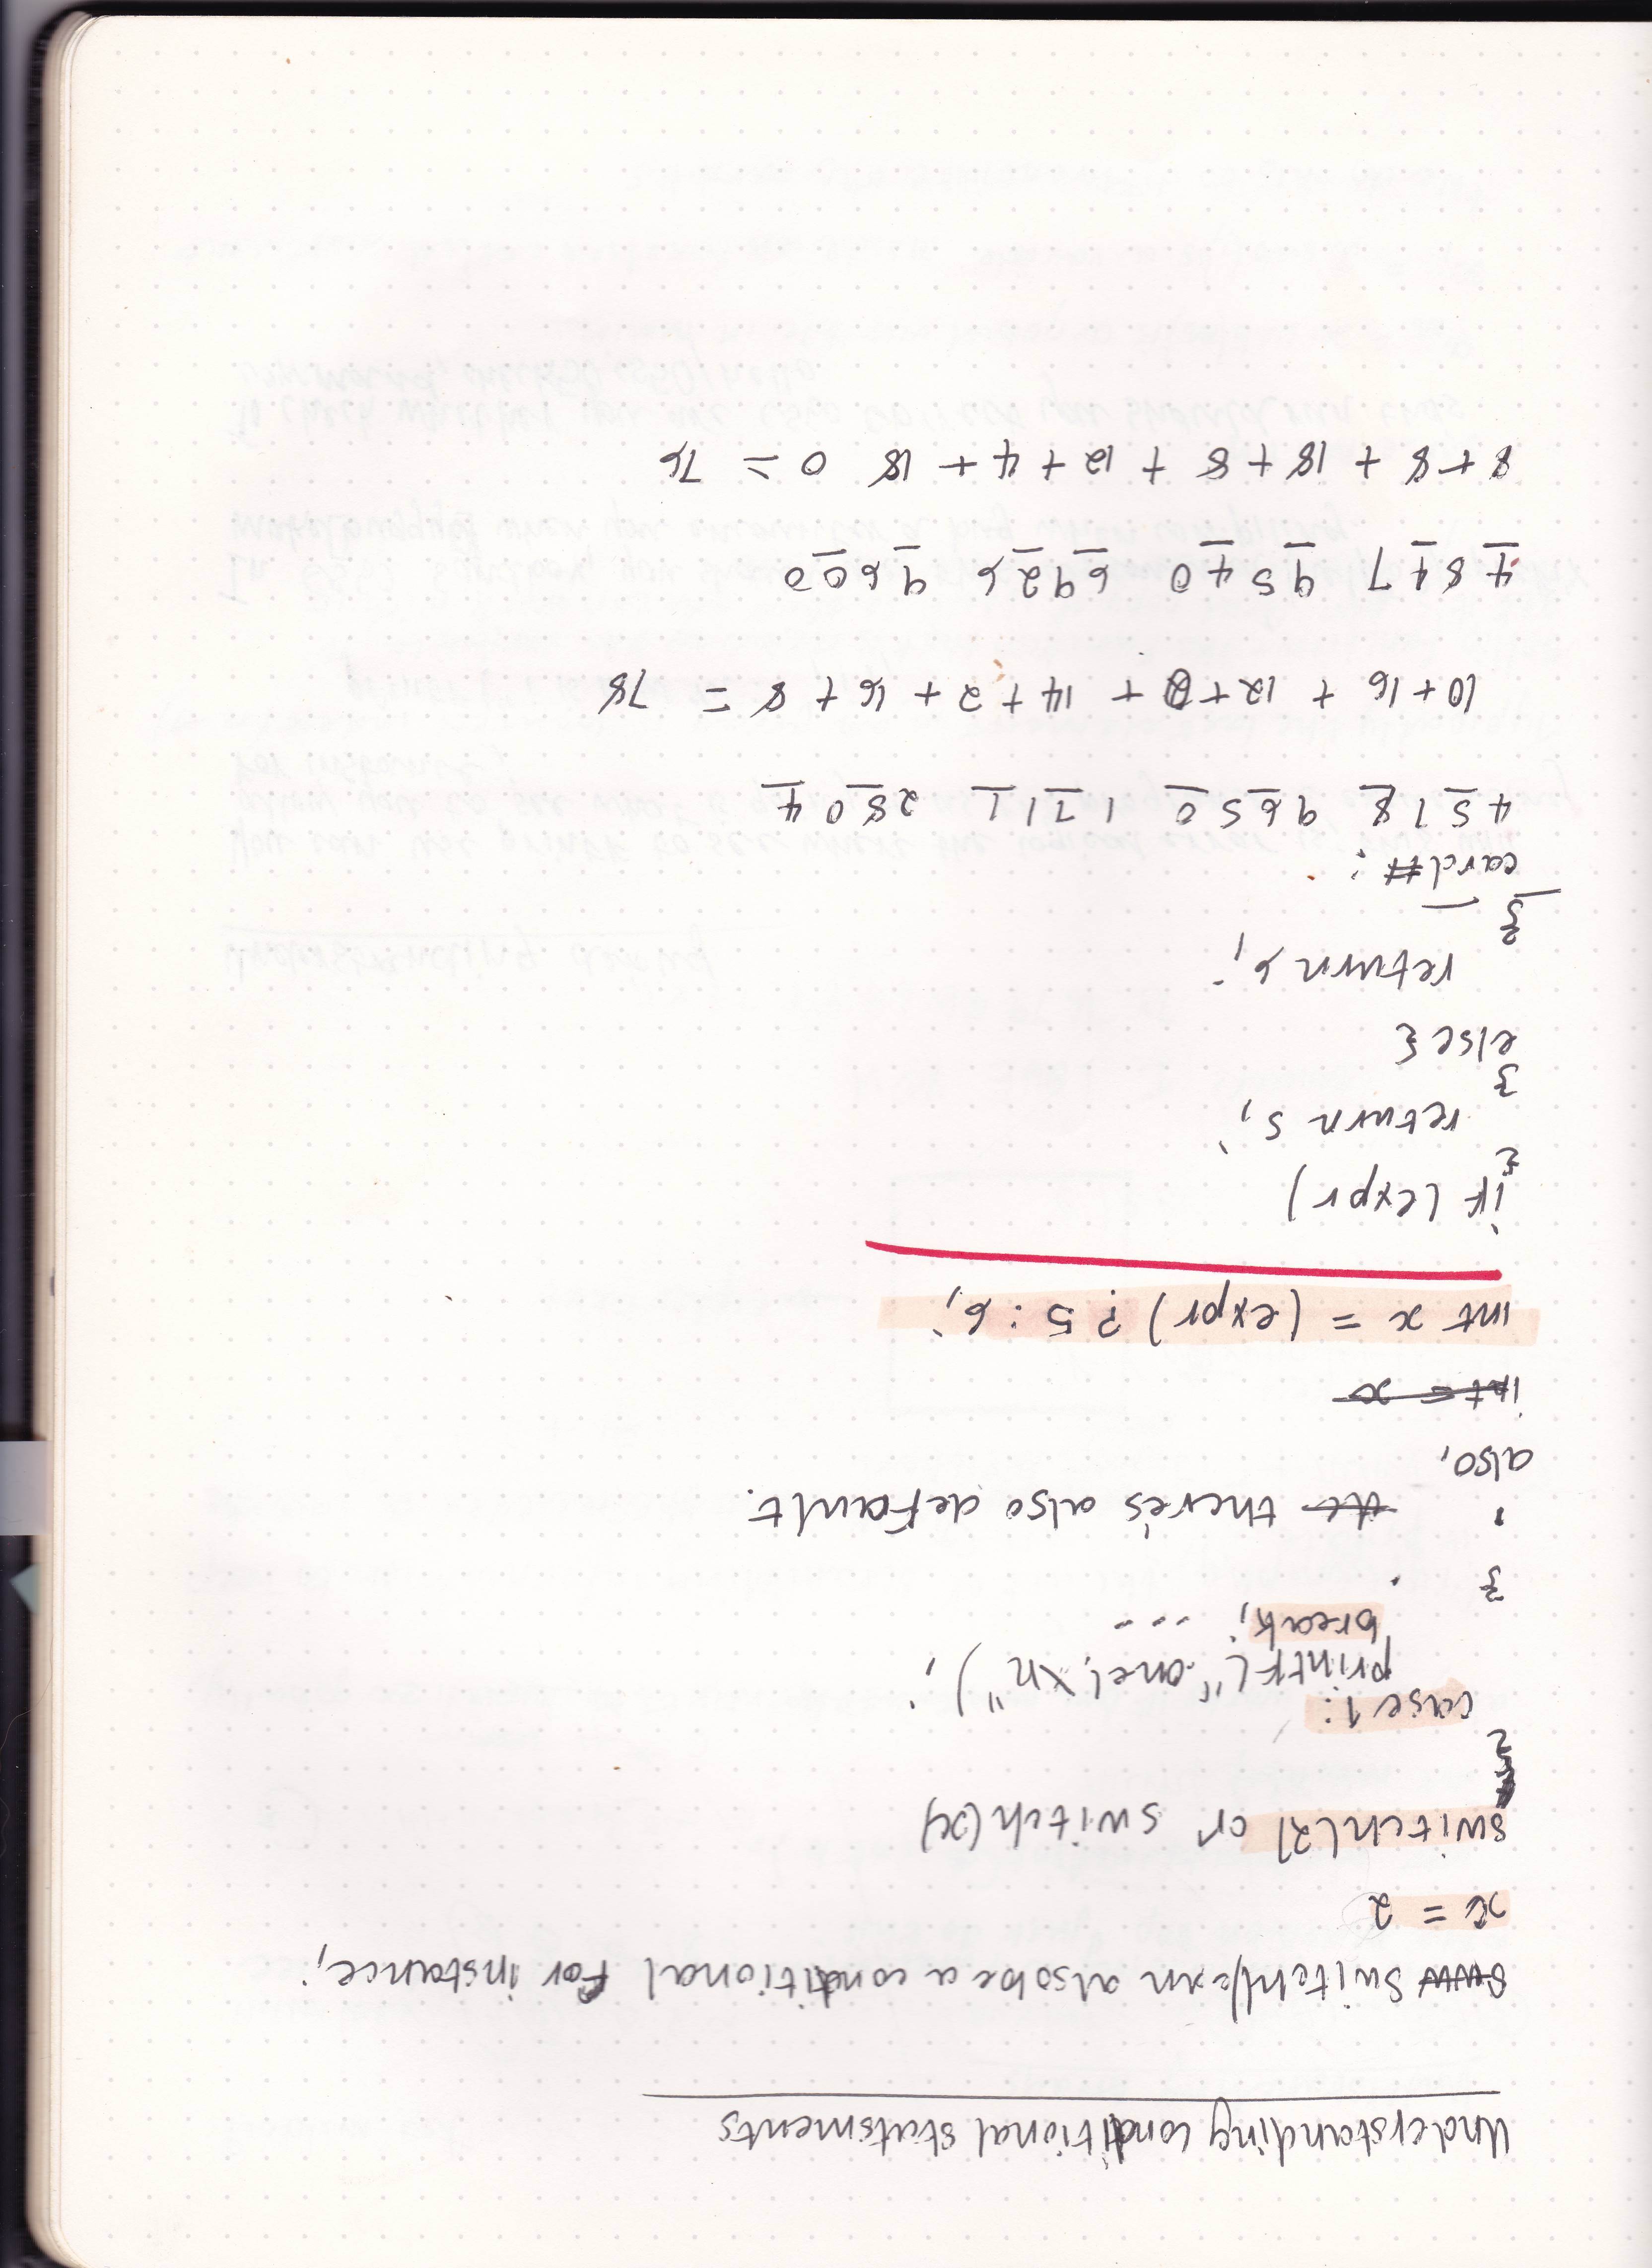 Understanding conditional statsments
sww switch() can also be a conditional for instance;
x = 2
switch(2) or switch(x)
{
case 1:
printf("one!\n");
break; ...
}
de there's also default.
also,
int = x
int x = (expr) ? 5 : 6;
if (expr)
{
return 5;
}
else {
return 6;
}
card#:
4578 9650 1711 2804
10+16 + 12+0 + 14+2 + 16+8 = 78
4847 9540 6926 9600
8+8 + 18+8 + 12+4 + 18 0 = 76